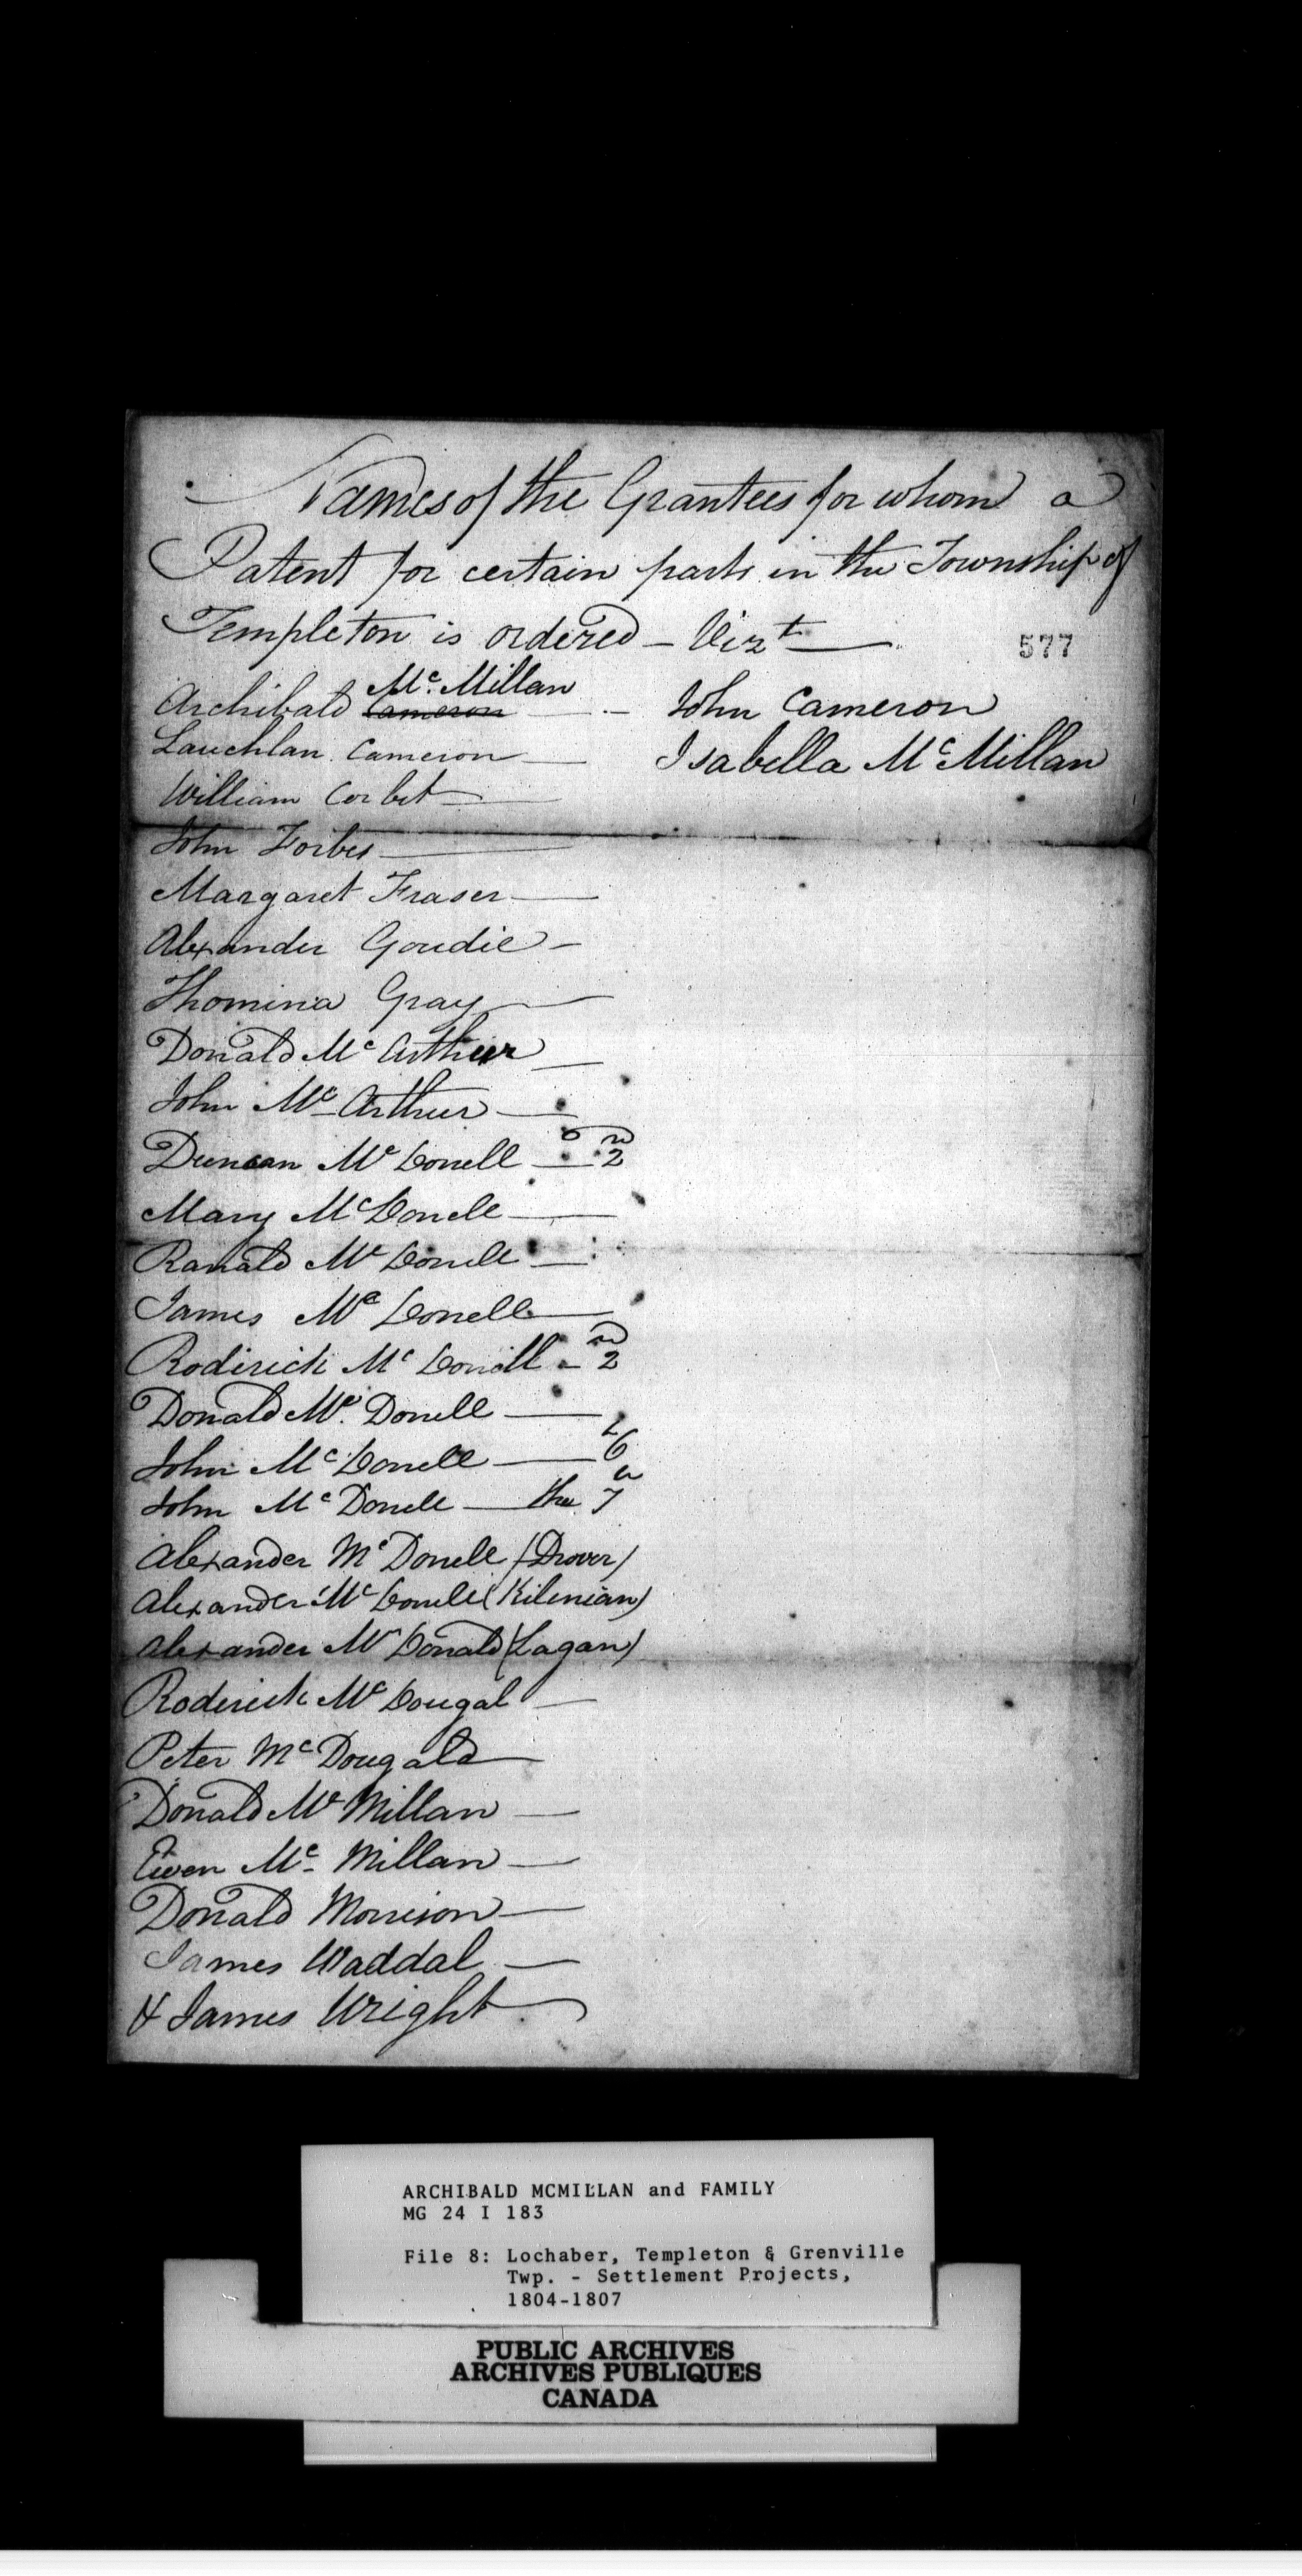 Names of the Grantees for whom a
Patent for certain parts in the Township of
Templeton is ordered – Vizt
577
Mc. Millan
Archibald Cameron
Lauchlan Cameron
William Corbet
John Forbes
Margaret Fraser
Alexander Goudie
Thomina Gray
Donald Mc Arthur
John Mc Arthur
Duncan Mc Donell 2d
Mary Mc Donell
Ranald Mc Donell
James Mc Donell
Roderick Mc Donell 2d
Donald Mc. Donell
John Mc Donell 6
John Mc Donell the 7
Alexander Mc Donell (Drover)
Alexander Mc Donell (Kilenian)
Alexander Mc Donald (Lagan)
Roderick Mc Dougal
Peter Mc Dougald
Donald Mc Millan
Ewen Mc Millan
Donald Morrison
James Waddal
& James Wright
John Cameron
Isabella Mc Millan
ARCHIBALD MCMILLAN and FAMILY
MG 24 I 183
File 8: Lochaber, Templeton & Grenville
Twp. - Settlement Projects,
1804-1807
PUBLIC ARCHIVES
ARCHIVES PUBLIQUES
CANADA